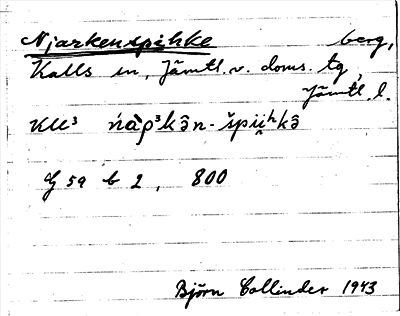 Njarkenspihke berg,
Kalls sn, Jämtl. v. doms. tg,
Jämtl. l.
KM³ ńàp³kə̑n-špii̮ʰkə̑
G 59 b 2, 800
Björn Collinder 1943